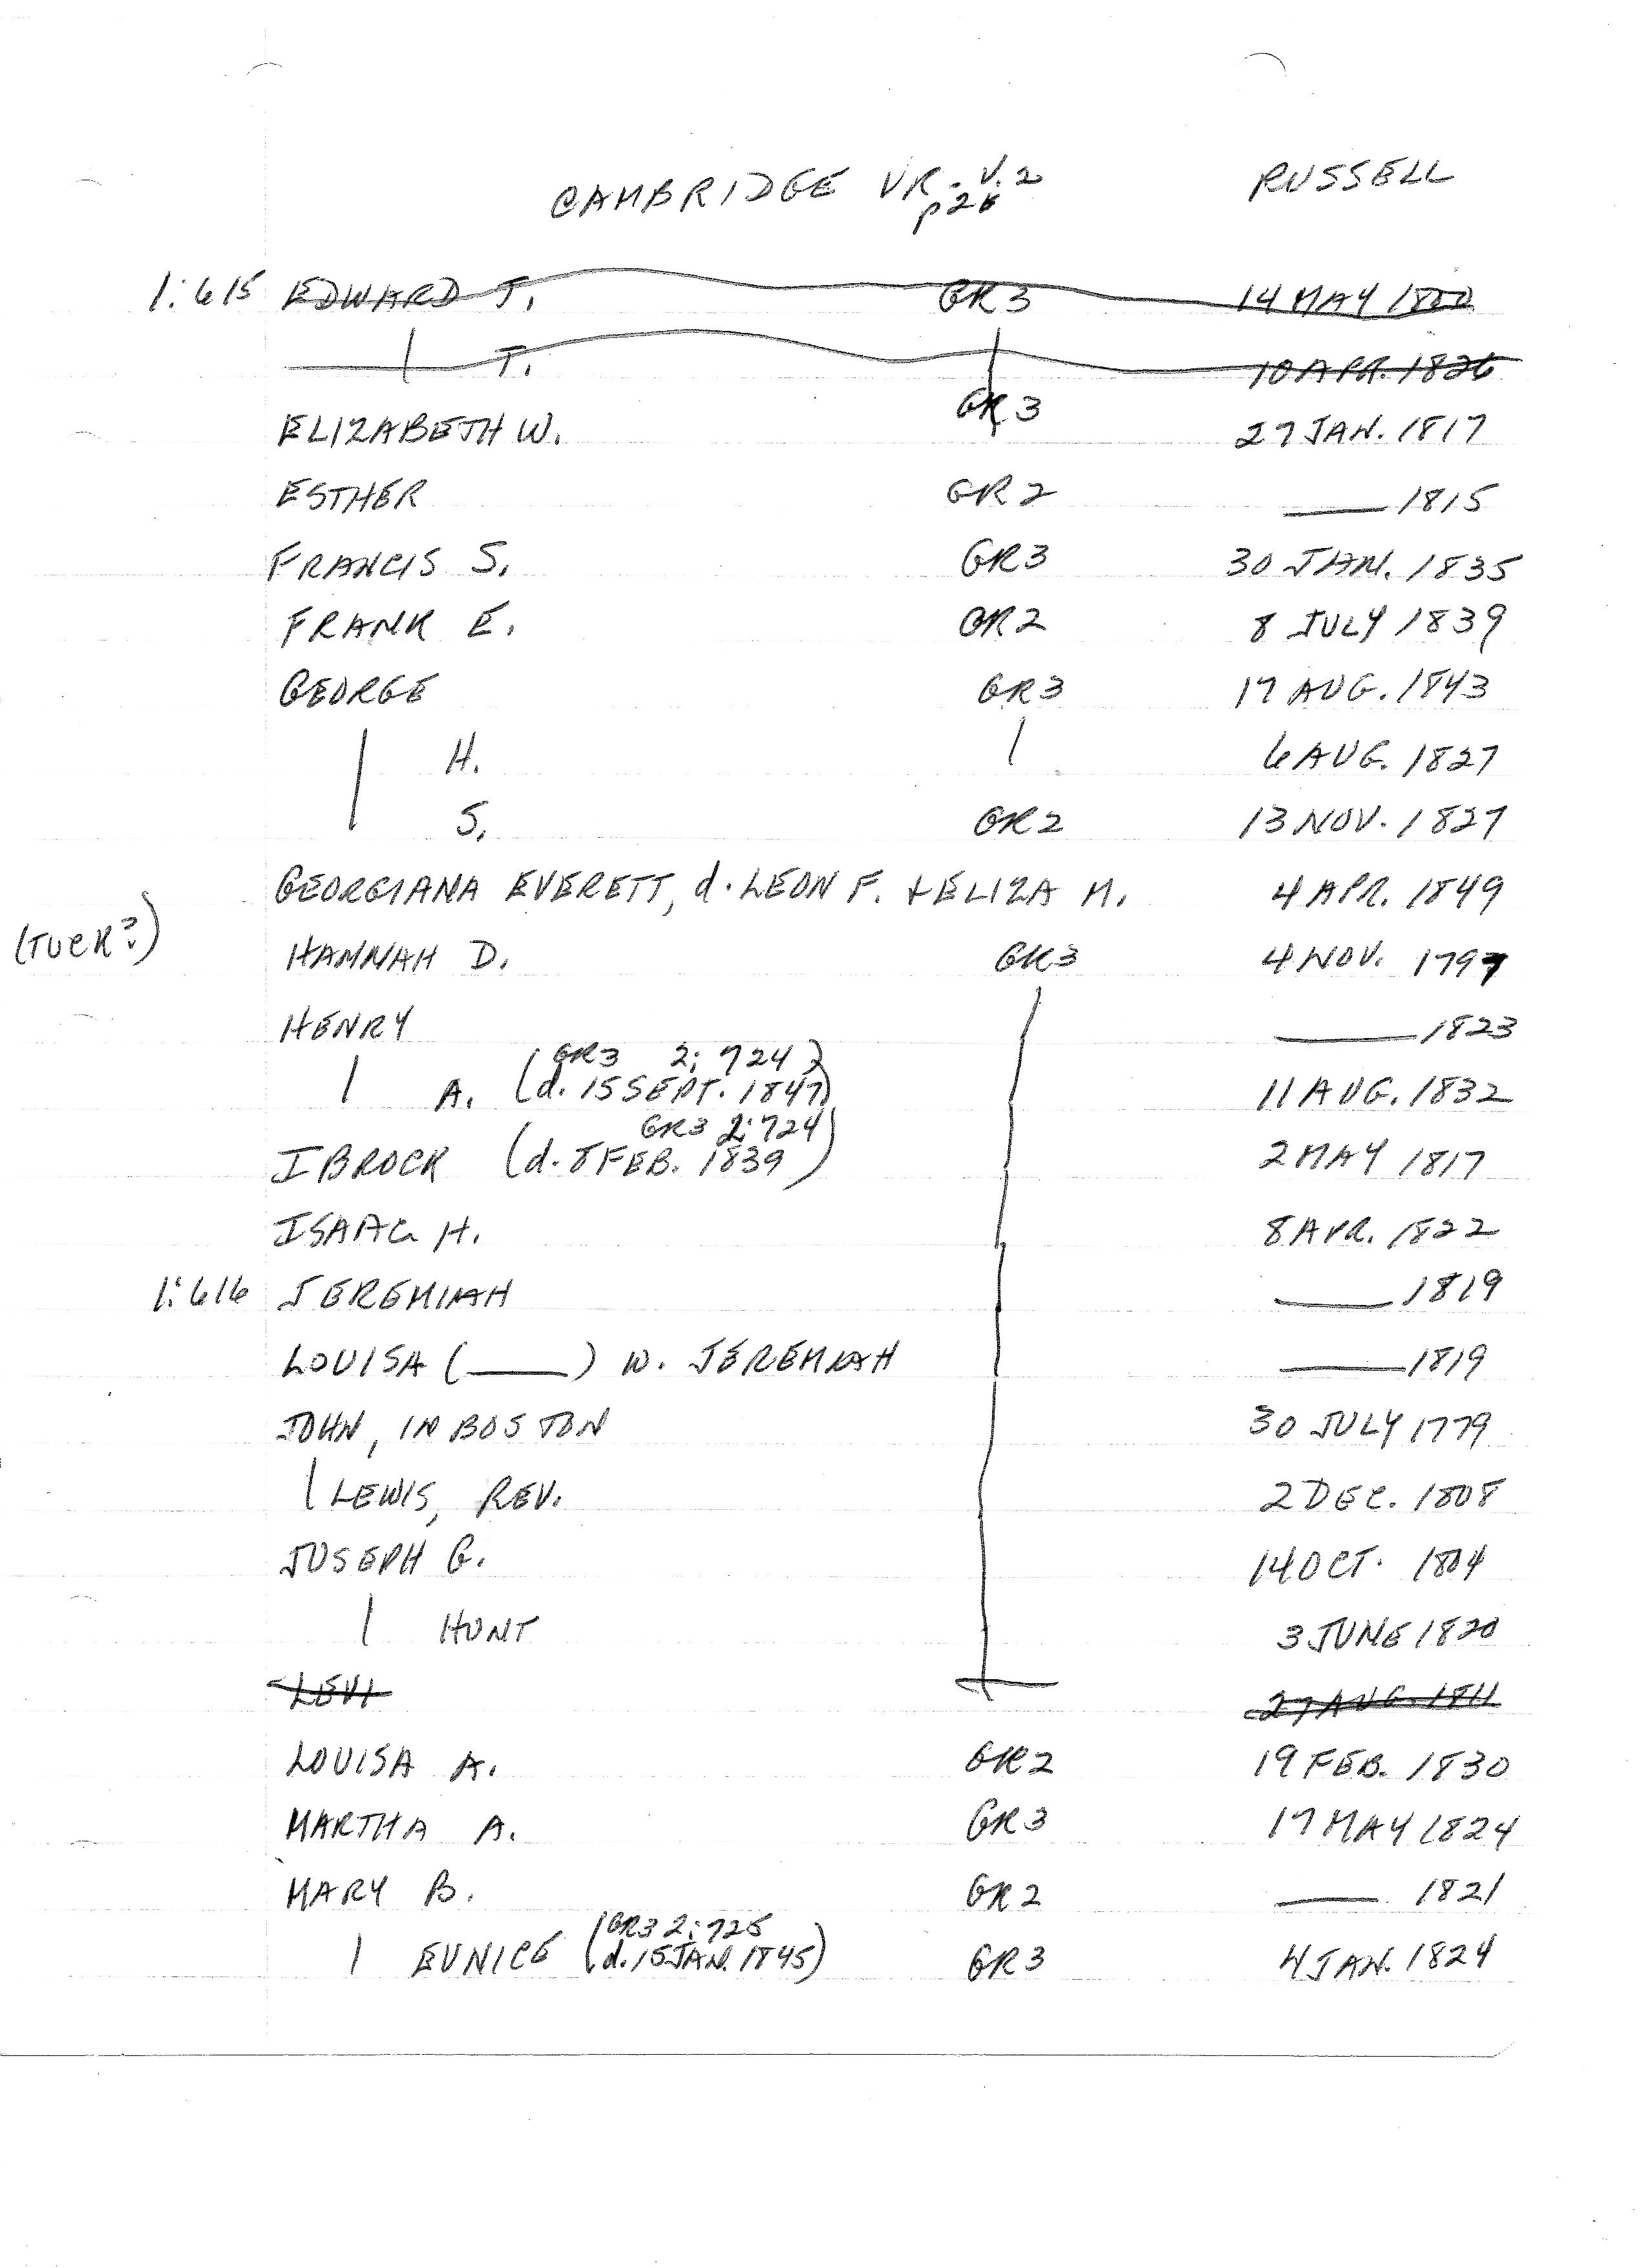 CAMBRIDGE VR. V. 2 RUSSELL
p 26
1:615 EDWARD J. GR3 14 MAY 1800
T. 10 APR. 1826
ELIZABETH W. GR3 27 JAN. 1817
ESTHER GR2 —— 1815
FRANCIS S. GR3 30 JAN. 1835
FRANK E. GR2 8 JULY 1839
GEORGE GR3 17 AUG. 1843
H. 6 AUG. 1827
S. GR2 13 NOV. 1827
GEORGIANA EVERETT, d. LEON F. + ELIZA M. 4 APR. 1849
(TUCK?) HANNAH D. GR3 4 NOV. 1797
HENRY —— 1823
(GR3 2:724)
A. (d. 15 SEPT. 1847) 11 AUG. 1832
GR3 2:724
IBROCK (d. 8 FEB. 1839) 2 MAY 1817
ISAAC H. 8 APR. 1822
1:616 JEREMIAH —— 1819
LOUISA (——) W. JEREMIAH —— 1819
JOHN, IN BOSTON 30 JULY 1779
LEWIS, REV. 2 DEC. 1808
JOSEPH G. 14 OCT. 1804
HUNT 3 JUNE 1820
LEVI 27 AUG. 1811
LOUISA A. GR2 19 FEB. 1830
MARTHA A. GR3 17 MAY 1824
MARY B. GR2 —— 1821
(GR3 2:725
EUNICE (d. 15 JAN. 1845) GR3 4 JAN. 1824